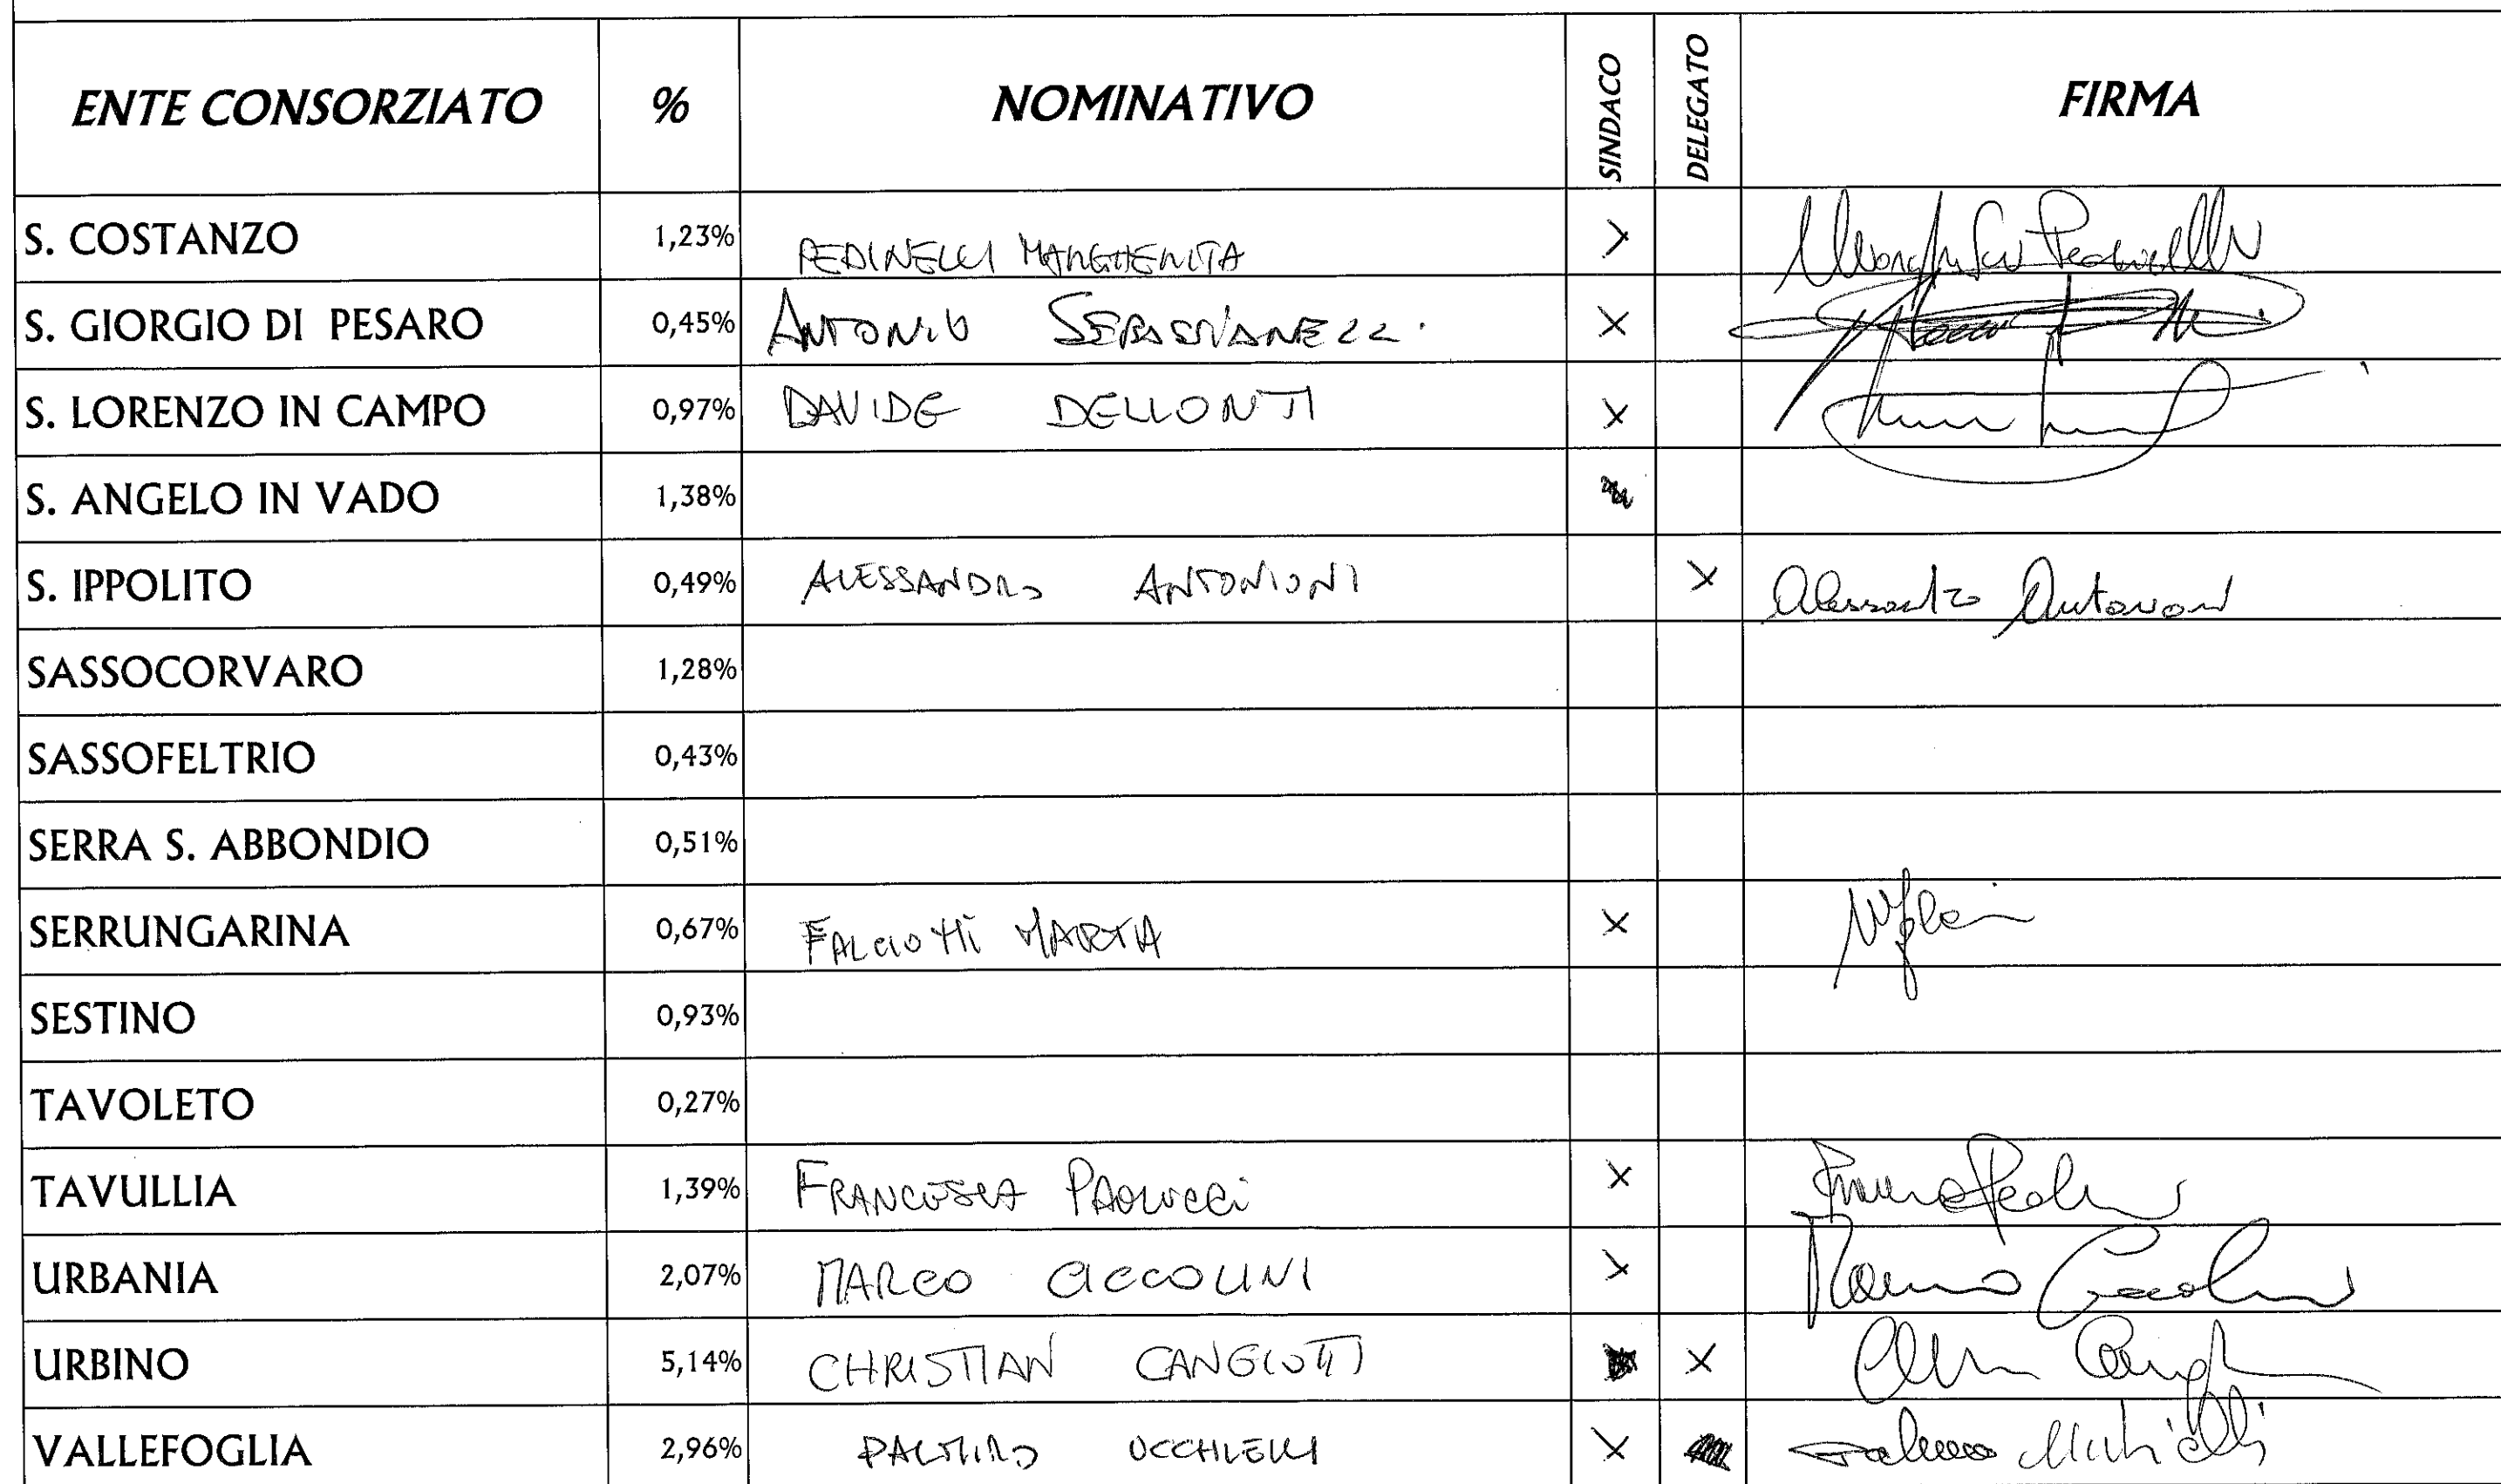 ENTE CONSORZIATO % NOMINATIVO SINDACO DELEGATO FIRMA
S. COSTANZO 1,23% PEDINELLI MARGHERITA X Margherita Pedinelli
S. GIORGIO DI PESARO 0,45% ANTONIO SEBASTIANELLI X
S. LORENZO IN CAMPO 0,97% DAVIDE DELLONTI X
S. ANGELO IN VADO 1,38%
S. IPPOLITO 0,49% ALESSANDRO ANTONIONI X Alessandro Antonioni
SASSOCORVARO 1,28%
SASSOFELTRIO 0,43%
SERRA S. ABBONDIO 0,51%
SERRUNGARINA 0,67% FALCIOTTI MARTA X
SESTINO 0,93%
TAVOLETO 0,27%
TAVULLIA 1,39% FRANCESCA PAOLUCCI X
URBANIA 2,07% MARCO CICCOLINI X Marco Ciccolini
URBINO 5,14% CHRISTIAN CANGIOTTI X
VALLEFOGLIA 2,96% PALMIRO UCCHIELLI X Palmiro Ucchielli